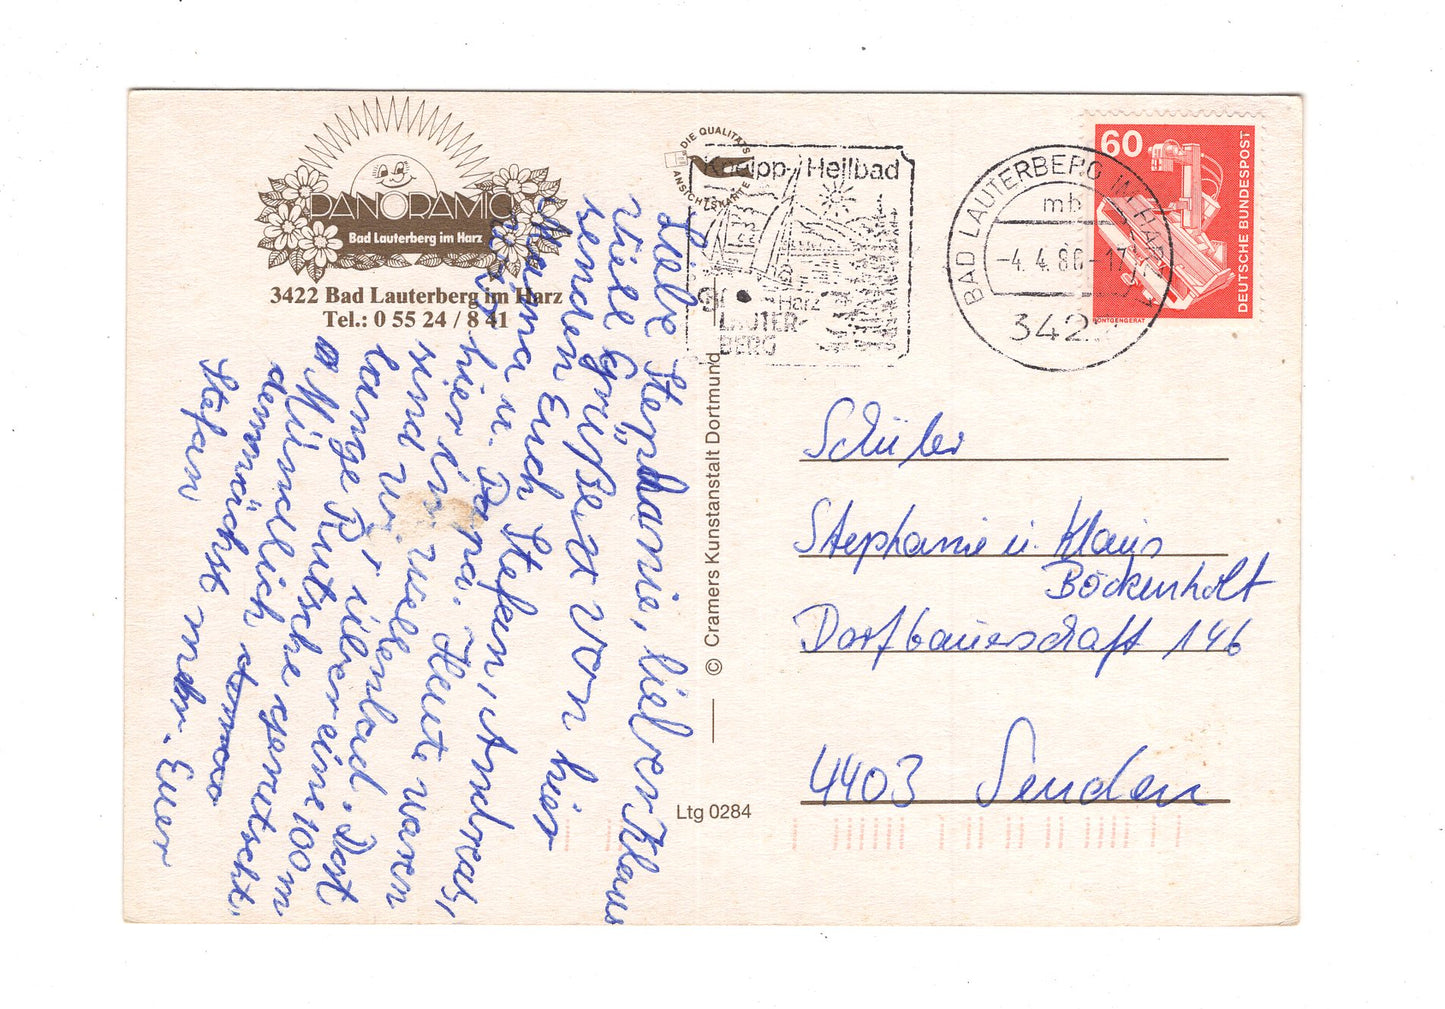 PANORAMIC
Bad Lauterberg im Harz
3422 Bad Lauterberg im Harz
Tel.: 0 55 24 / 8 41
Liebe Stephanie, lieber Klaus
viele Grüße
senden Euch von hier
Mama u. Stefan, Andreas,
Papa. Heute waren
wir hier im wellen
und wi
lange Rutsche. Dort
über eine 100 m
Mündlich gerutscht.
demnächst mehr. Euer
Stefan
DIE QUALITÄTS
ANSICHTSKARTE
Kneipp-Heilbad
Harz
LAUTER-
BERG
BAD LAUTERBERG IM HARZ
mb
-4.4.86-17
342
60
DEUTSCHE BUNDESPOST
RÖNTGENGERÄT
© Cramers Kunstanstalt Dortmund
Ltg 0284
Schüler
Stephanie u. Klaus
Böckenholt
Dorfbauerschaft 146
4403 Senden